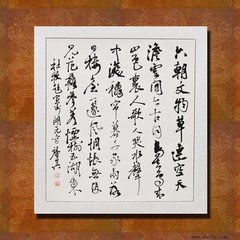 六朝文物草連空天
澹雲閒今古同鳥去鳥來
山色裏人歌人哭水聲
中深秋簾幕千家雨落
日樓臺一笛風惆悵無
見范蠡參差煙樹五湖東
杜牧題宣州開元